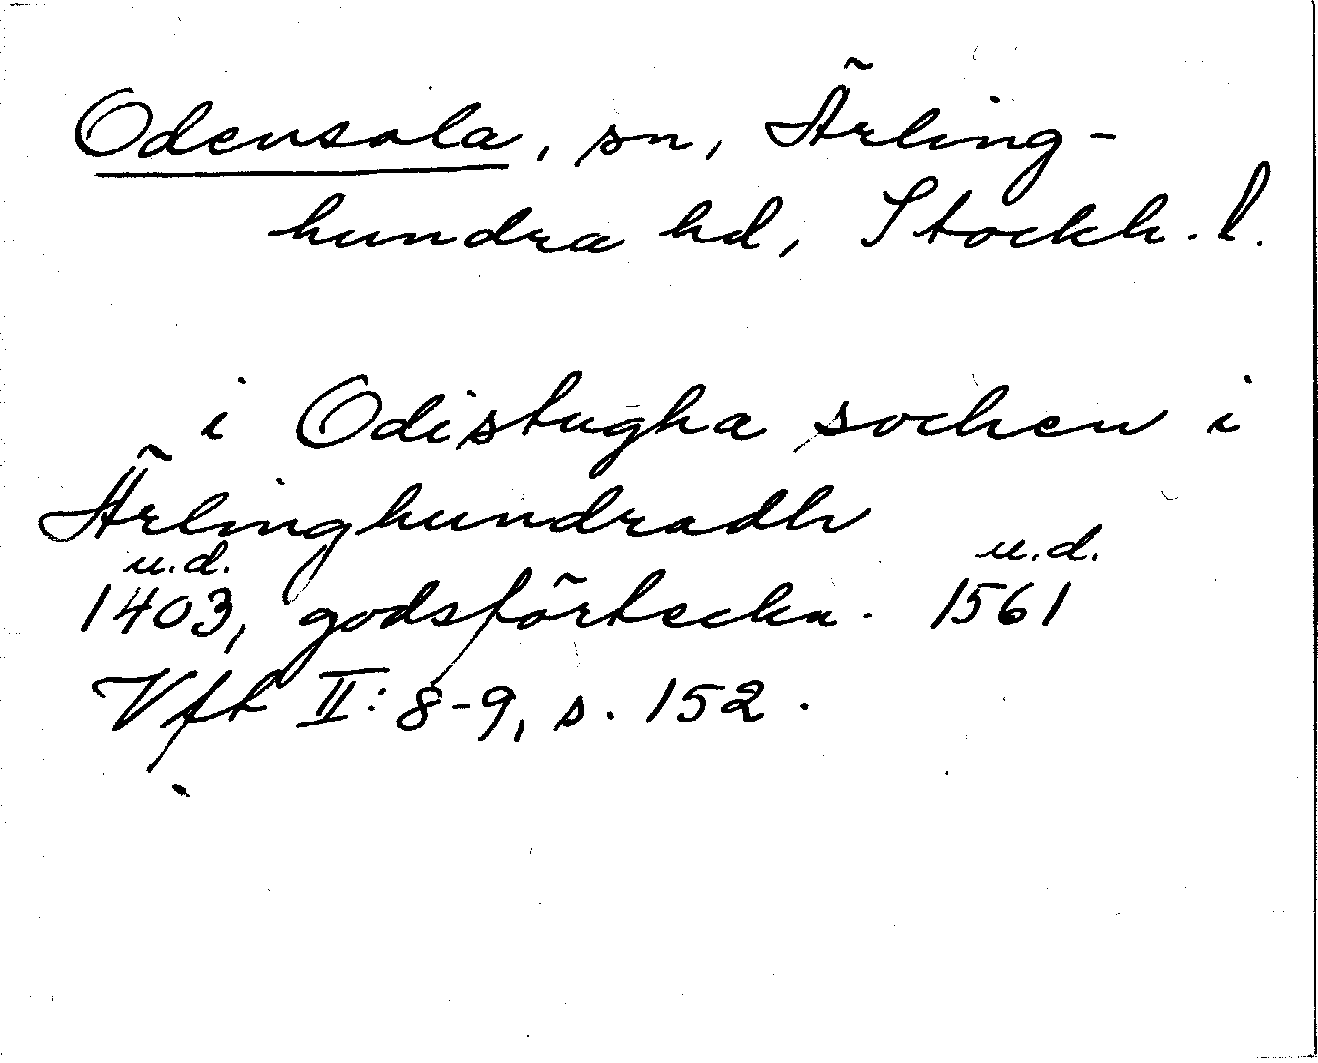 Odensala, sn, Ärling-
hundra hd, Stockh. l.
i Odistugha sochen i
Ärlinghundradh
u.d. u.d.
1403, godsförteckn. 1561
Vft II: 8-9, s. 152.